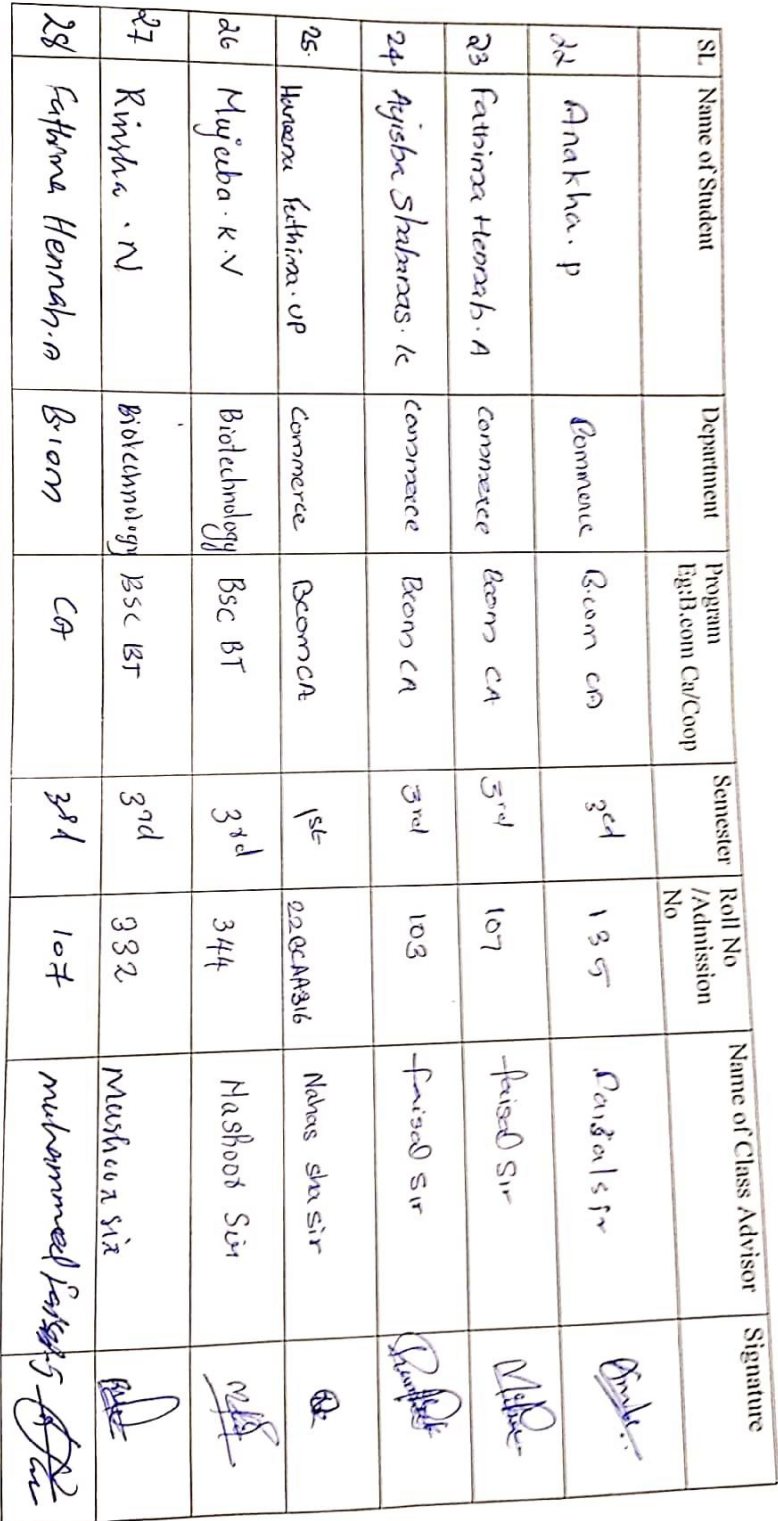 SL Name of Student Department Program Eg:B.com Ca/Coop Semester Roll No /Admission No Name of Class Advisor Signature
22 Anakha. P Commerce B.com CA 3rd 135 Faisal sir
23 Fathima Hennah. A Commerce Bcom CA 3rd 107 faisal Sir
24 Ayisha Shabanas. K Commerce Bcom CA 3rd 103 faisal sir
25. Fathima. UP Commerce Bcom CA 1st Nahas sha sir
26 Mujeeba. K. V Biotechnology BSC BT 3rd 344 Mashoor Sir
27 Rinsha. N Biotechnology BSC BT 3rd 332 Mashoor sir
28 Fathima Hennah. A B.com CA 3rd 107 muhammed